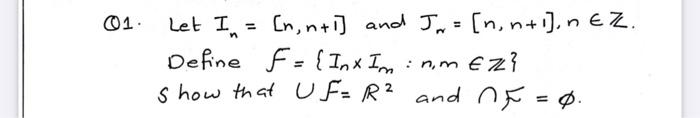 Q1. Let Iₙ = [n, n+1] and Jₙ = [n, n+1], n ∈ ℤ.
Define F = {Iₙ × Iₘ : n, m ∈ ℤ}
Show that ∪ F = ℝ² and ∩ F = ∅.